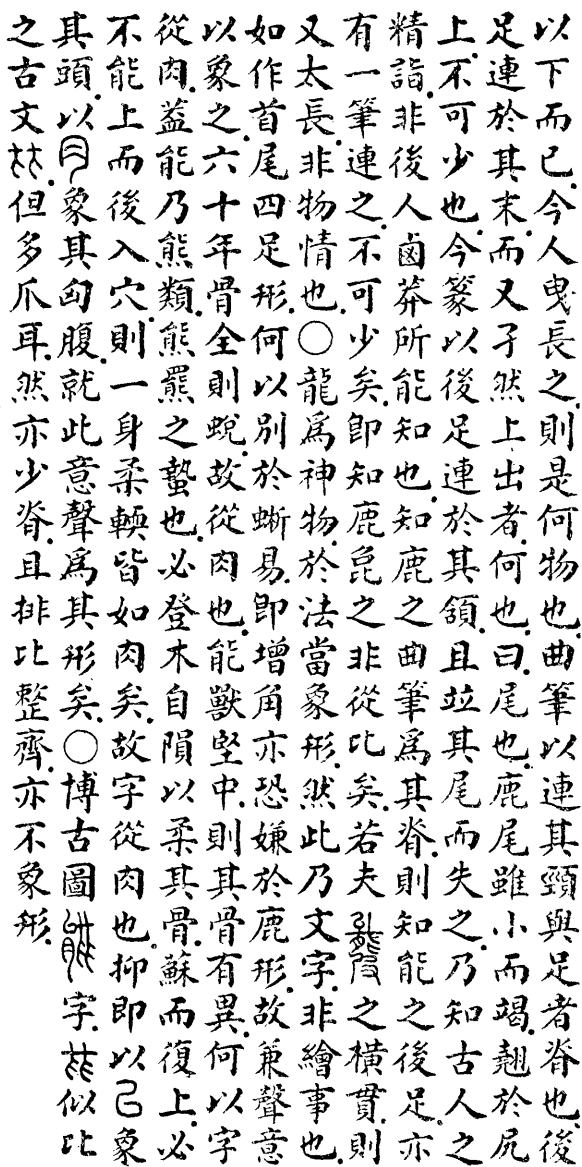 以下而已。今人曳長之。則是何物也。曲筆以連其頸與足者脊也。後
足連於其末。而又孑然上出者。何也。曰。尾也。鹿尾雖小而竭翹於尻
上。不可少也。今篆以後足連於其頷。且竝其尾而失之。乃知古人之
精詣。非後人鹵莽所能知也。知鹿之曲筆爲其脊。則知能之後足。亦
有一筆連之。不可少矣。卽知鹿㲋之非從比矣。若夫之橫貫。則
又太長。非物情也。○龍爲神物。於法當象形。然此乃文字。非繪事也。
如作首尾四足形。何以別於蜥易。卽增角亦恐嫌於鹿形。故兼聲意
以象之。六十年骨全則蛻。故從肉也。能獸堅中。則其骨有異。何以字
從肉。葢能乃熊類。熊羆之蟄也。必登木自隕以柔其骨。蘇而復上。必
不能上而後入穴。則一身柔輭皆如肉矣。故字從肉也。抑卽以象
其頭。以象其匈腹。就此意聲爲其形矣。○博古圖字。似比
之古文。但多爪耳。然亦少脊。且排比整齊。亦不象形。